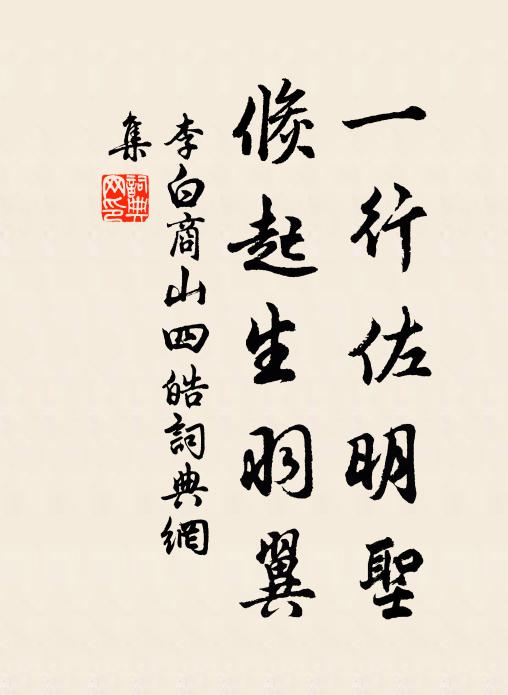 一行佐明聖
倐起生羽翼
李白商山四皓詞典網
集
詞典網印